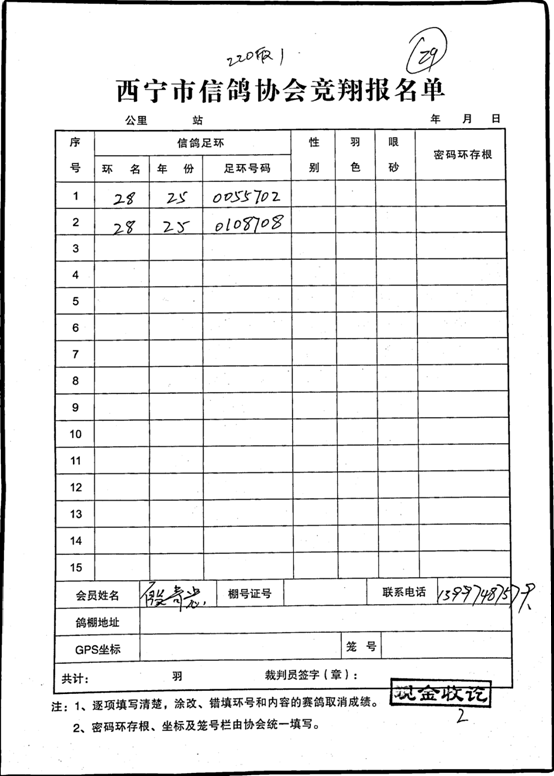 220取1
29
西宁市信鸽协会竞翔报名单
公里 站 年 月 日
序号 信鸽足环 性别 羽色 眼砂 密码环存根
环 名 年 份 足环号码
1 28 25 0055702
2 28 25 0108708
3
4
5
6
7
8
9
10
11
12
13
14
15
会员姓名 棚号证号 联系电话
鸽棚地址
GPS坐标 笼 号
共计: 羽 裁判员签字(章):
现金收讫
注:1、逐项填写清楚,涂改、错填环号和内容的赛鸽取消成绩。
2
2、密码环存根、坐标及笼号栏由协会统一填写。